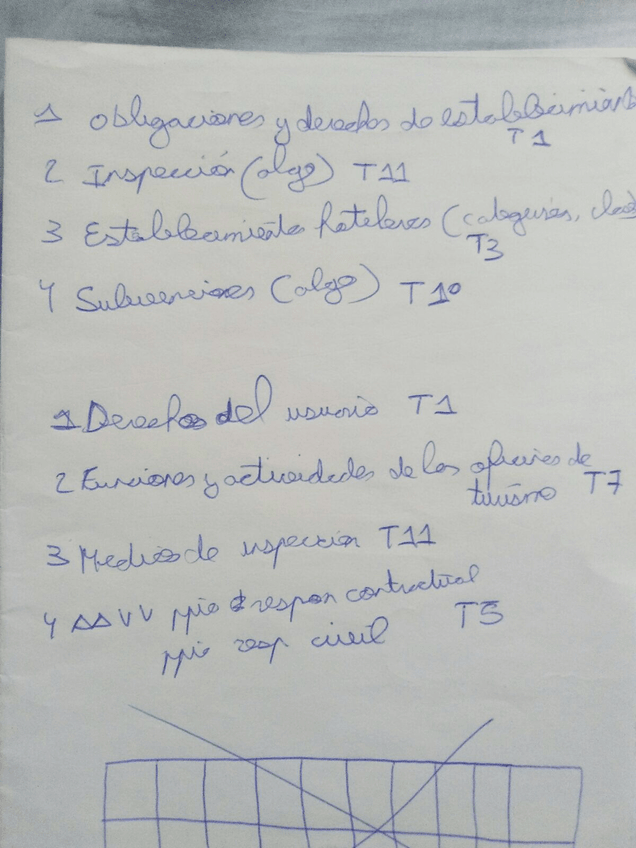 1 Obligaciones y derechos de establecimient
T1
2 Inspección (algo) T11
3 Establecimientos hoteleros (categorías, clas
T3
4 Subvenciones (algo) T10
1 Derechos del usuario T1
2 Funciones y actividades de las oficinas de
turismo T7
3 Medios de inspección T11
4 AAVV ppio respon contractual
ppio resp civil T5